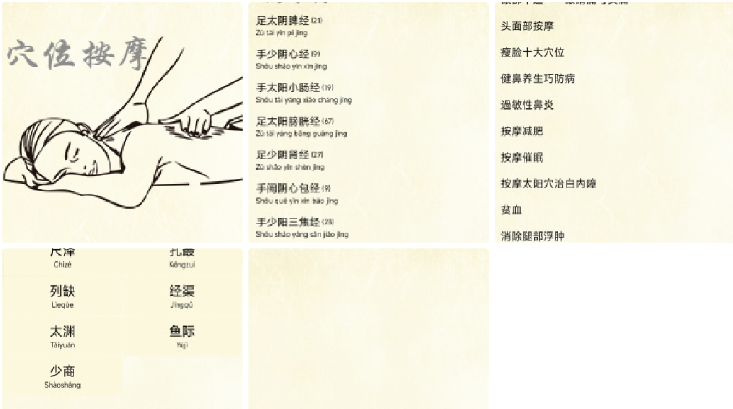 穴位按摩
足太阴脾经 (21)
Zú tài yīn pí jīng
手少阴心经 (9)
Shǒu shào yīn xīn jīng
手太阳小肠经 (19)
Shǒu tài yáng xiǎo cháng jīng
足太阳膀胱经 (67)
Zú tài yáng bǎng guāng jīng
足少阴肾经 (27)
Zú shǎo yīn shèn jīng
手阙阴心包经 (9)
Shǒu què yīn xīn bāo jīng
手少阳三焦经 (23)
Shǒu shào yáng sān jiāo jīng
头面部按摩
瘦脸十大穴位
健鼻养生巧防病
過敏性鼻炎
按摩减肥
按摩催眠
按摩太阳穴治白内障
贫血
消除腿部浮肿
尺泽 孔最
Chǐzé Kǒngzuì
列缺 经渠
Lièquē Jīngqú
太渊 鱼际
Tàiyuān Yújì
少商
Shàoshāng